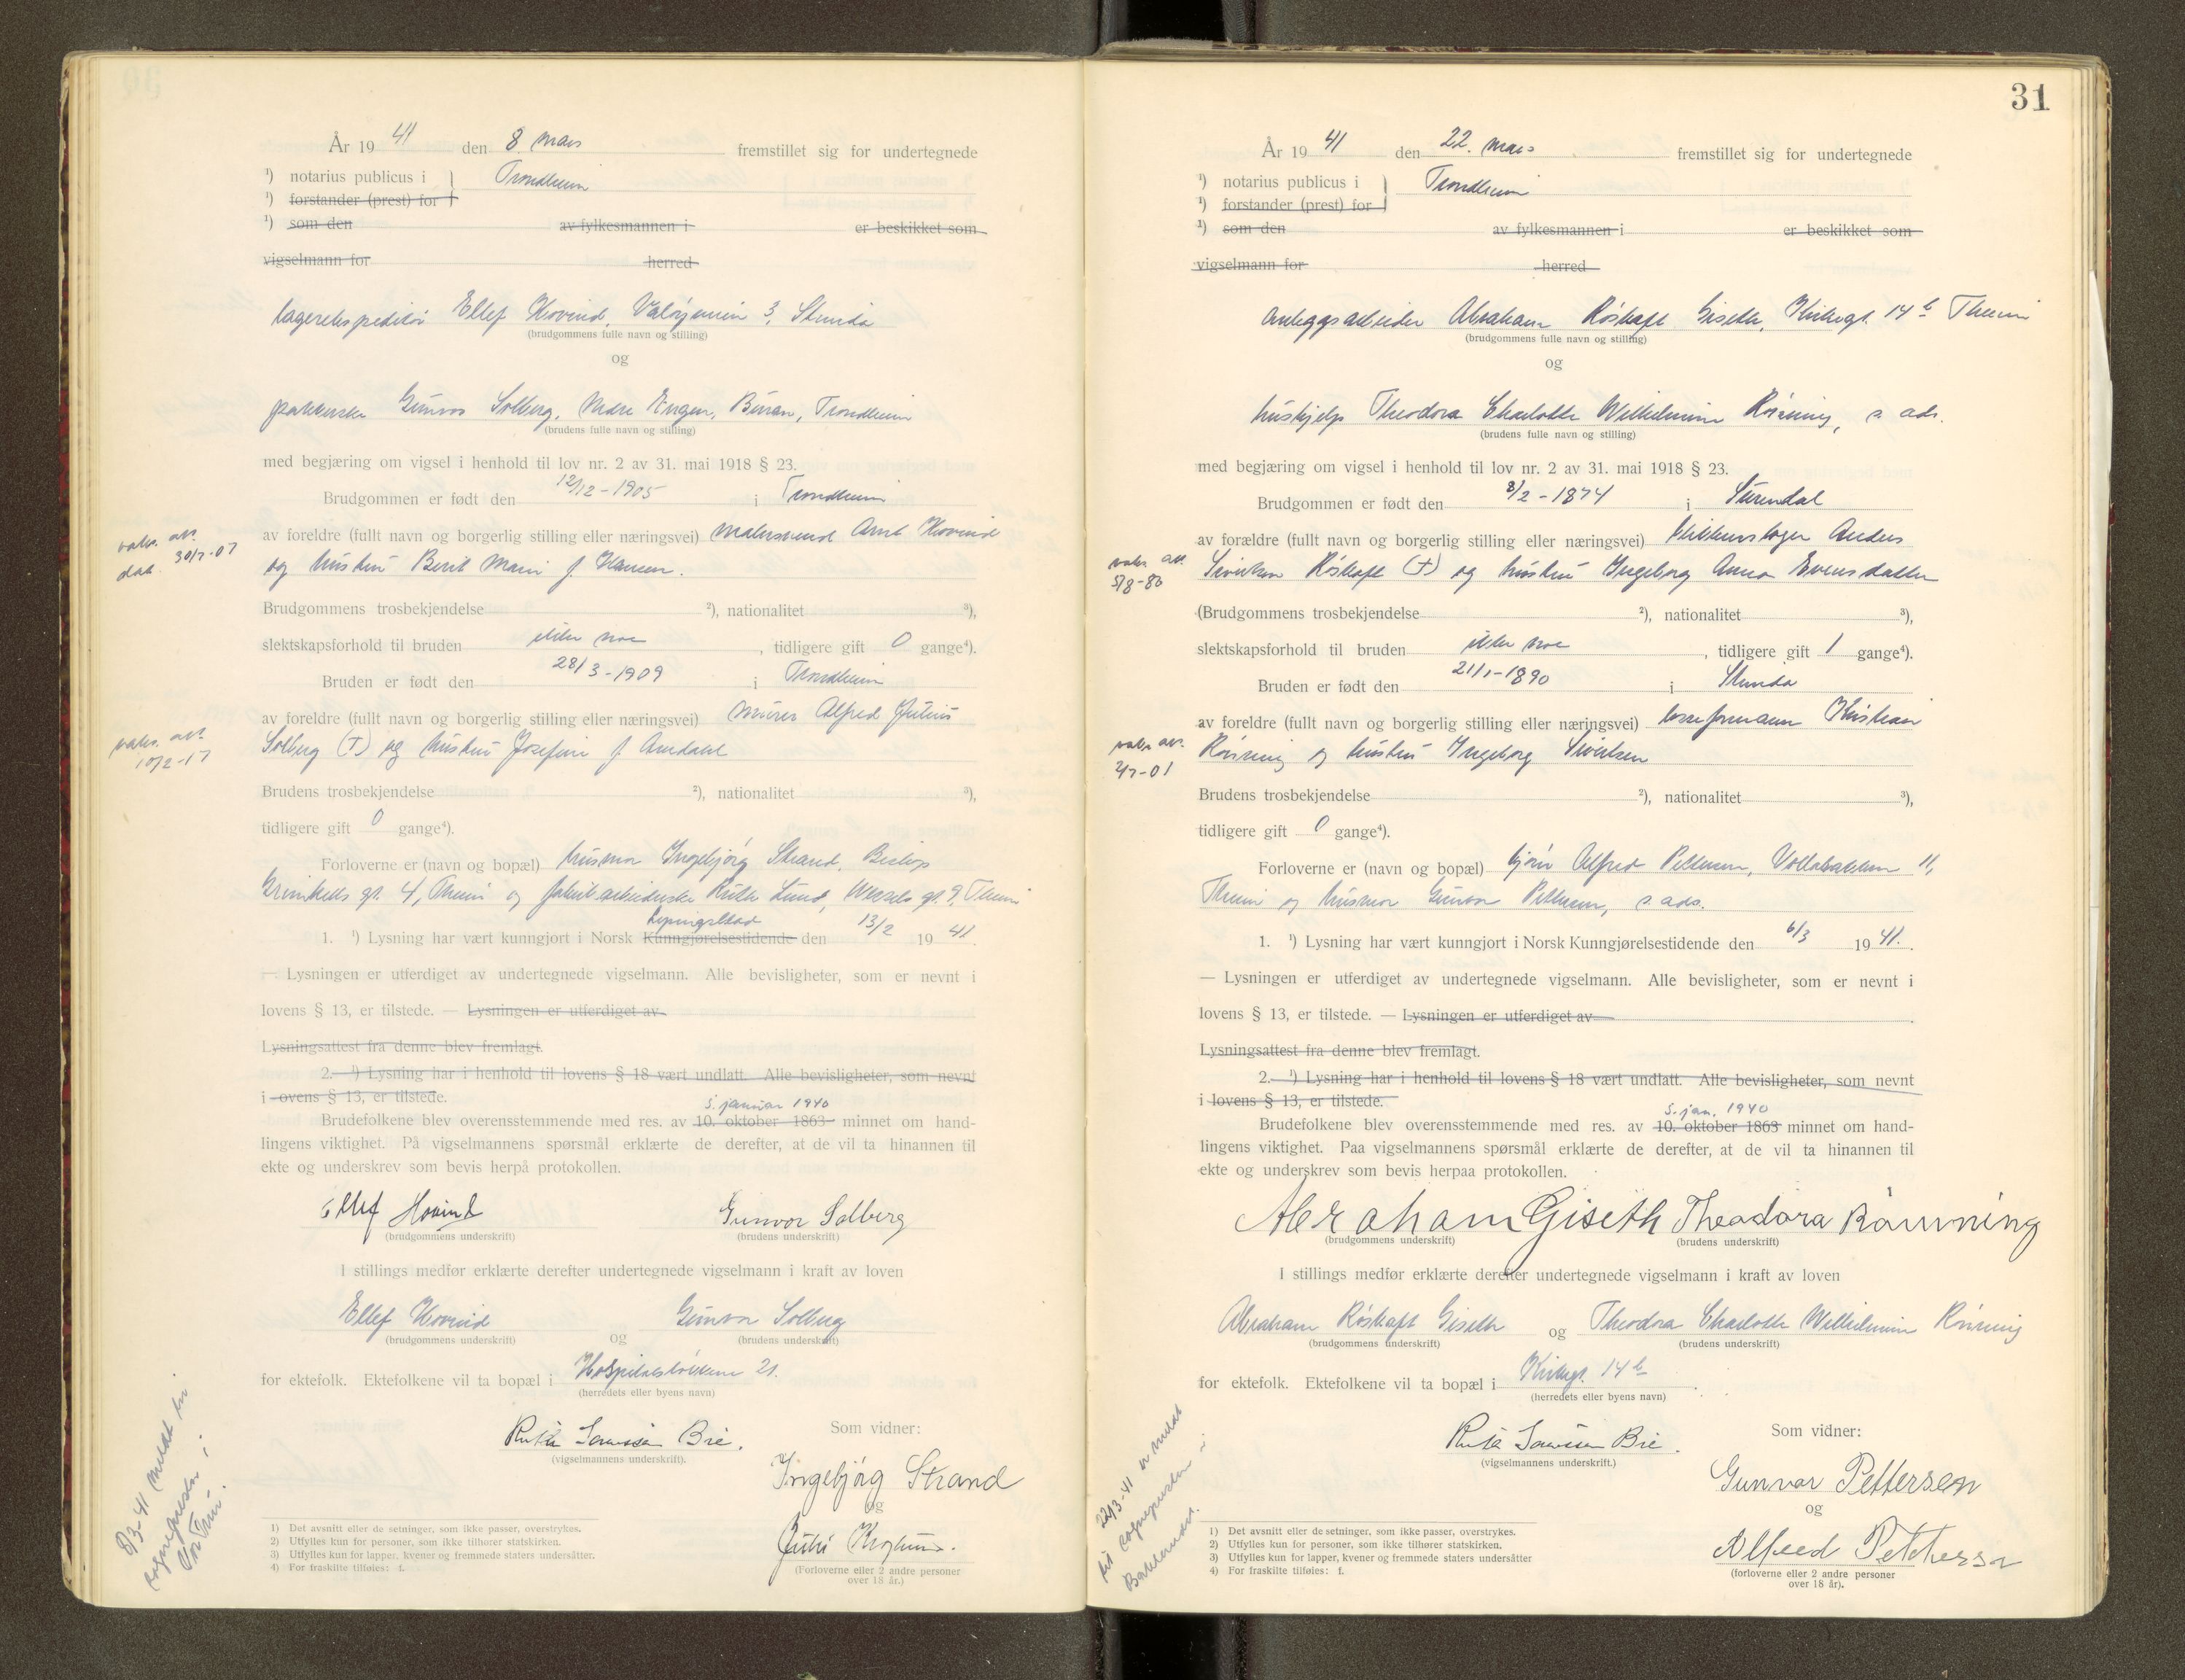 År 19 41 den 8. mars fremstillet sig for undertegnede
¹) notarius publicus i } Trondheim
¹) forstander (prest) for
¹) som den av fylkesmannen i er beskikket som
vigselmann for herred
lagerekspeditør Ellef Hovind, Valøyveien 3, Strinda
(brudgommens fulle navn og stilling)
og
pakkerske Gunvor Solberg, Nedre Engen, Buran, Trondheim
(brudens fulle navn og stilling)
med begjæring om vigsel i henhold til lov nr. 2 av 31. mai 1918 § 23.
Brudgommen er født den 12/12-1905 i Trondheim
vaks. att. dat. 30/7-07
av foreldre (fullt navn og borgerlig stilling eller næringsvei) malersvend Arnt Hovind
og hustru Berit Marie f. Hansen.
Brudgommens trosbekjendelse ²), nationalitet ³),
slektskapsforhold til bruden ikke noe, tidligere gift 0 gange⁴).
Bruden er født den 28/3-1909 i Trondheim
av foreldre (fullt navn og borgerlig stilling eller næringsvei) murer Alfred Julius
vaks. att. 10/2-17
Solberg (†) og hustru Josefine f. Amdahl
Brudens trosbekjendelse ²), nationalitet ³),
tidligere gift 0 gange⁴).
Forloverne er (navn og bopæl) husmor Ingebjørg Strand, Bishop
Grimkells gt. 4, Trheim og fabrikarbeiderske Ruth Lund, Wessels gt. 9, Trheim
1. ¹) Lysning har vært kunngjort i Norsk Kunngjørelsestidende Lysingsblad den 13/2 19 41.
— Lysningen er utferdiget av undertegnede vigselmann. Alle bevisligheter, som er nevnt i
lovens § 13, er tilstede. — Lysningen er utferdiget av
Lysningsattest fra denne blev fremlagt.
2. ¹) Lysning har i henhold til lovens § 18 vært undlatt. Alle bevisligheter, som nevnt
i ovens § 13, er tilstede.
5. januar 1940
Brudefolkene blev overensstemmende med res. av 10. oktober 1863 minnet om hand-
lingens viktighet. På vigselmannens spørsmål erklærte de derefter, at de vil ta hinannen til
ekte og underskrev som bevis herpå protokollen.
Ellef Hovind Gunvor Solberg
(brudgommens underskrift) (brudens underskrift)
I stillings medfør erklærte derefter undertegnede vigselmann i kraft av loven
Ellef Hovind og Gunvor Solberg
(brudgommens underskrift) (brudens underskrift)
for ektefolk. Ektefolkene vil ta bopæl i Hospitalsløkkene 21.
(herredets eller byens navn)
Som vidner:
Ruth Sørensen Bie.
(vigselmannens underskrift).
Ingebjørg Strand
og
(Forloverne eller 2 andre personer
over 18 år.)
8/3-41 meldt til
sognepresten i
Vår Frue.
1) Det avsnitt eller de setninger, som ikke passer, overstrykes.
2) Utfylles kun for personer, som ikke tilhører statskirken.
3) Utfylles kun for lapper, kvener og fremmede staters undersåtter.
4) For fraskilte tilføies: f.
31
År 19 41 den 22. mars fremstillet sig for undertegnede
¹) notarius publicus i } Trondheim
¹) forstander (prest) for
¹) som den av fylkesmannen i er beskikket som
vigselmann for herred
anleggsarbeider Abraham Røskaft Giseth, Kirkegt. 14 b Trheim
(brudgommens fulle navn og stilling)
og
hushjelp Theodora Charlotte Wilhelmine Rönning, s. ads.
(brudens fulle navn og stilling)
med begjæring om vigsel i henhold til lov nr. 2 av 31. mai 1918 § 23.
Brudgommen er født den 8/2-1874 i Surendal
av forældre (fullt navn og borgerlig stilling eller næringsvei) blikkenslager Anders
vaks. att. 5/8-80
Sivertsen Røskaft (†) og hustru Ingeborg Anna Evensdatter
(Brudgommens trosbekjendelse ²), nationalitet ³),
slektskapsforhold til bruden ikke noe, tidligere gift 1 gange⁴).
Bruden er født den 21/1-1890 i Strinda
av foreldre (fullt navn og borgerlig stilling eller næringsvei) losseformann Kristian
vaks. att. 4/7-01
Rönning og hustru Ingeborg Sivertsen
Brudens trosbekjendelse ²), nationalitet ³),
tidligere gift 0 gange⁴).
Forloverne er (navn og bopæl) kjører Alfred Pettersen, Vollabakken 11,
Trheim og husmor Gunvor Pettersen, s. ads.
1. ¹) Lysning har vært kunngjort i Norsk Kunngjørelsestidende den 6/3 19 41.
— Lysningen er utferdiget av undertegnede vigselmann. Alle bevisligheter, som er nevnt i
lovens § 13, er tilstede. — Lysningen er utferdiget av
Lysningsattest fra denne blev fremlagt.
2. ¹) Lysning har i henhold til lovens § 18 vært undlatt. Alle bevisligheter, som nevnt
i lovens § 13, er tilstede.
5. jan. 1940
Brudefolkene blev overensstemmende med res. av 10. oktober 1863 minnet om hand-
lingens viktighet. Paa vigselmannens spørsmål erklærte de derefter, at de vil ta hinannen til
ekte og underskrev som bevis herpaa protokollen.
Abraham Giseth Theodora Rönning
(brudgommens underskrift) (brudens underskrift)
I stillings medfør erklærte derefter undertegnede vigselmann i kraft av loven
Abraham Røskaft Giseth og Theodora Charlotte Wilhelmine Rönning
(brudgommens underskrift) (brudens underskrift)
for ektefolk. Ektefolkene vil ta bopæl i Kirkegt. 14 b
(herredets eller byens navn)
Som vidner:
Ruth Sørensen Bie.
(vigselmannens underskrift.)
Gunvor Pettersen
og
Alfred Pettersen
(forloverne eller 2 andre personer
over 18 år).
22/3-41 er meldt
til sognepresten i
Bakklandet.
1) Det avsnitt eller de setninger, som ikke passer, overstrykes.
2) Utfylles kun for personer, som ikke tilhører statskirken.
3) Utfylles kun for lapper, kvener og fremmede staters undersåtter
4) For fraskilte tilføies: f.